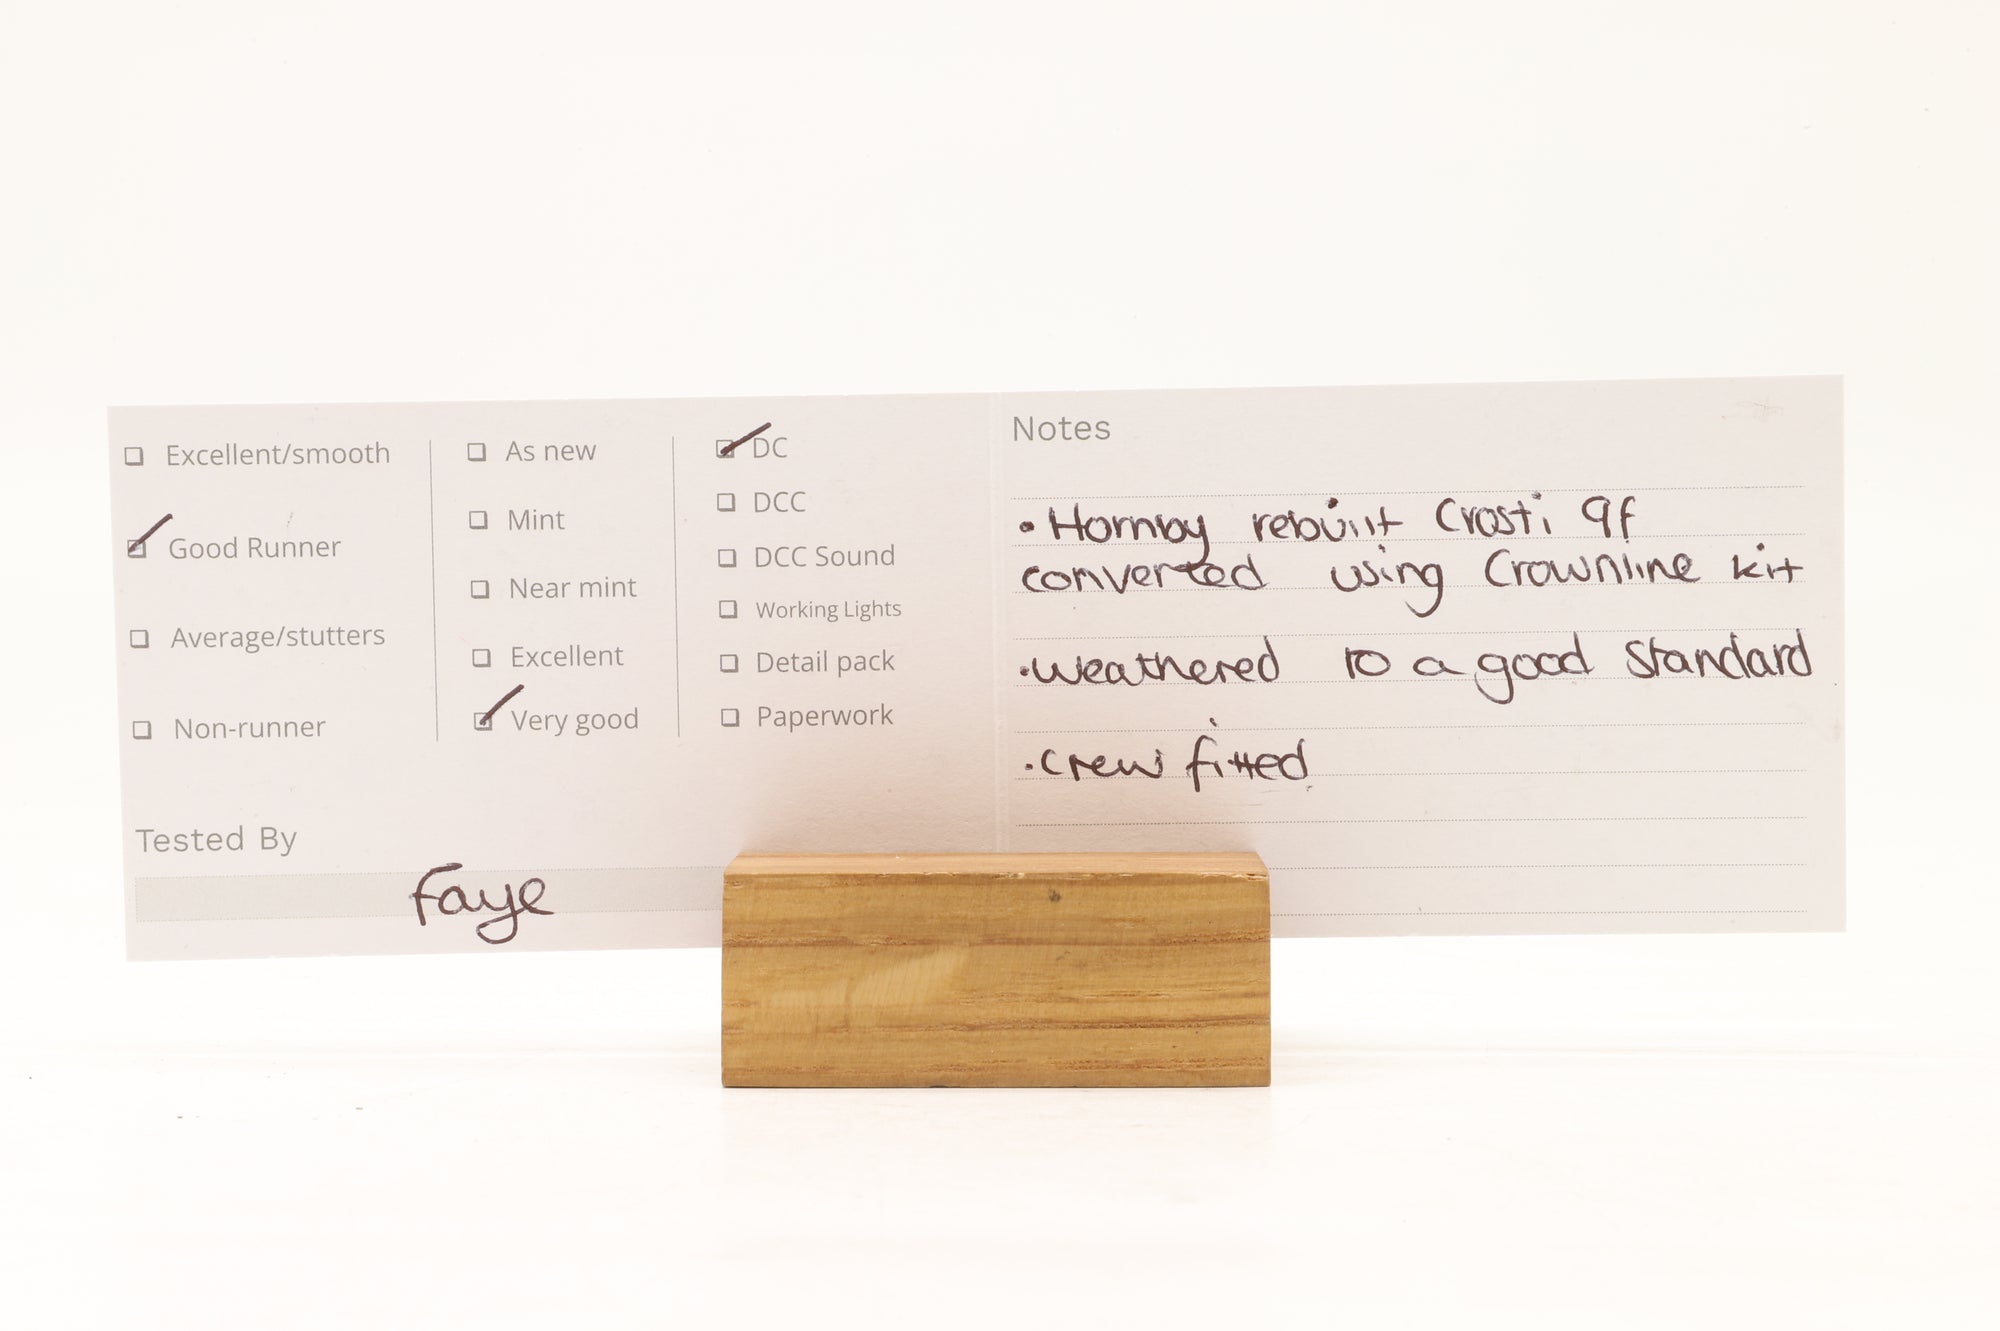 Excellent/smooth
Good Runner
Average/stutters
Non-runner
As new
Mint
Near mint
Excellent
Very good
DC
DCC
DCC Sound
Working Lights
Detail pack
Paperwork
Tested By
Faye
Notes
• Hornby rebuilt Crosti 9f
converted using Crownline kit
• weathered to a good standard
• crew fitted